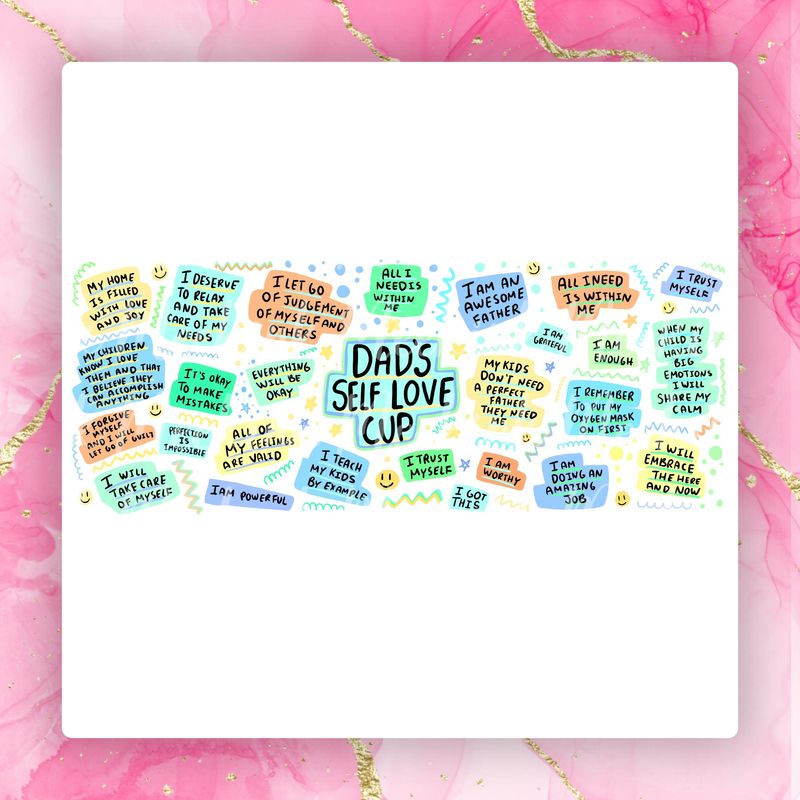 MY HOME
IS FILLED
WITH LOVE
AND JOY
I DESERVE
TO RELAX
AND TAKE
CARE OF MY
NEEDS
I LET GO
OF JUDGEMENT
OF MYSELF AND
OTHERS
ALL I
NEED IS
WITHIN
ME
I AM AN
AWESOME
FATHER
ALL I NEED
IS WITHIN
ME
I TRUST
MYSELF
MY CHILDREN
KNOW I LOVE
THEM AND THAT
I BELIEVE THEY
CAN ACCOMPLISH
ANYTHING
IT'S OKAY
TO MAKE
MISTAKES
EVERYTHING
WILL BE
OKAY
DAD'S
SELF LOVE
CUP
MY KIDS
DON'T NEED
A PERFECT
FATHER
THEY NEED
ME
I AM
GRATEFUL
I AM
ENOUGH
WHEN MY
CHILD IS
HAVING
BIG
EMOTIONS
I WILL
SHARE MY
CALM
I REMEMBER
TO PUT MY
OXYGEN MASK
ON FIRST
I FORGIVE
MYSELF
AND I WILL
LET GO OF GUILT
PERFECTION
IS
IMPOSSIBLE
ALL OF
MY FEELINGS
ARE VALID
I WILL
TAKE CARE
OF MYSELF
I AM POWERFUL
I TEACH
MY KIDS
BY EXAMPLE
I TRUST
MYSELF
I GOT
THIS
I AM
WORTHY
I AM
DOING AN
AMAZING
JOB
I WILL
EMBRACE
THE HERE
AND NOW